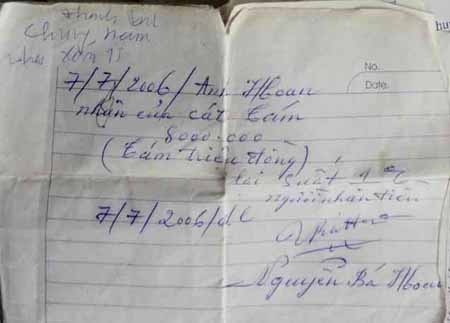 thanh
Chung nam
xóm 15
No.
Date.
7/7/2006/ Anh Hoan
nhận của cát Tám
8000.000
(Tám triệu đồng)
lãi suất 1%
người nhận tiền
7/7/2006/dl
Nguyễn Bá Hoan
hu